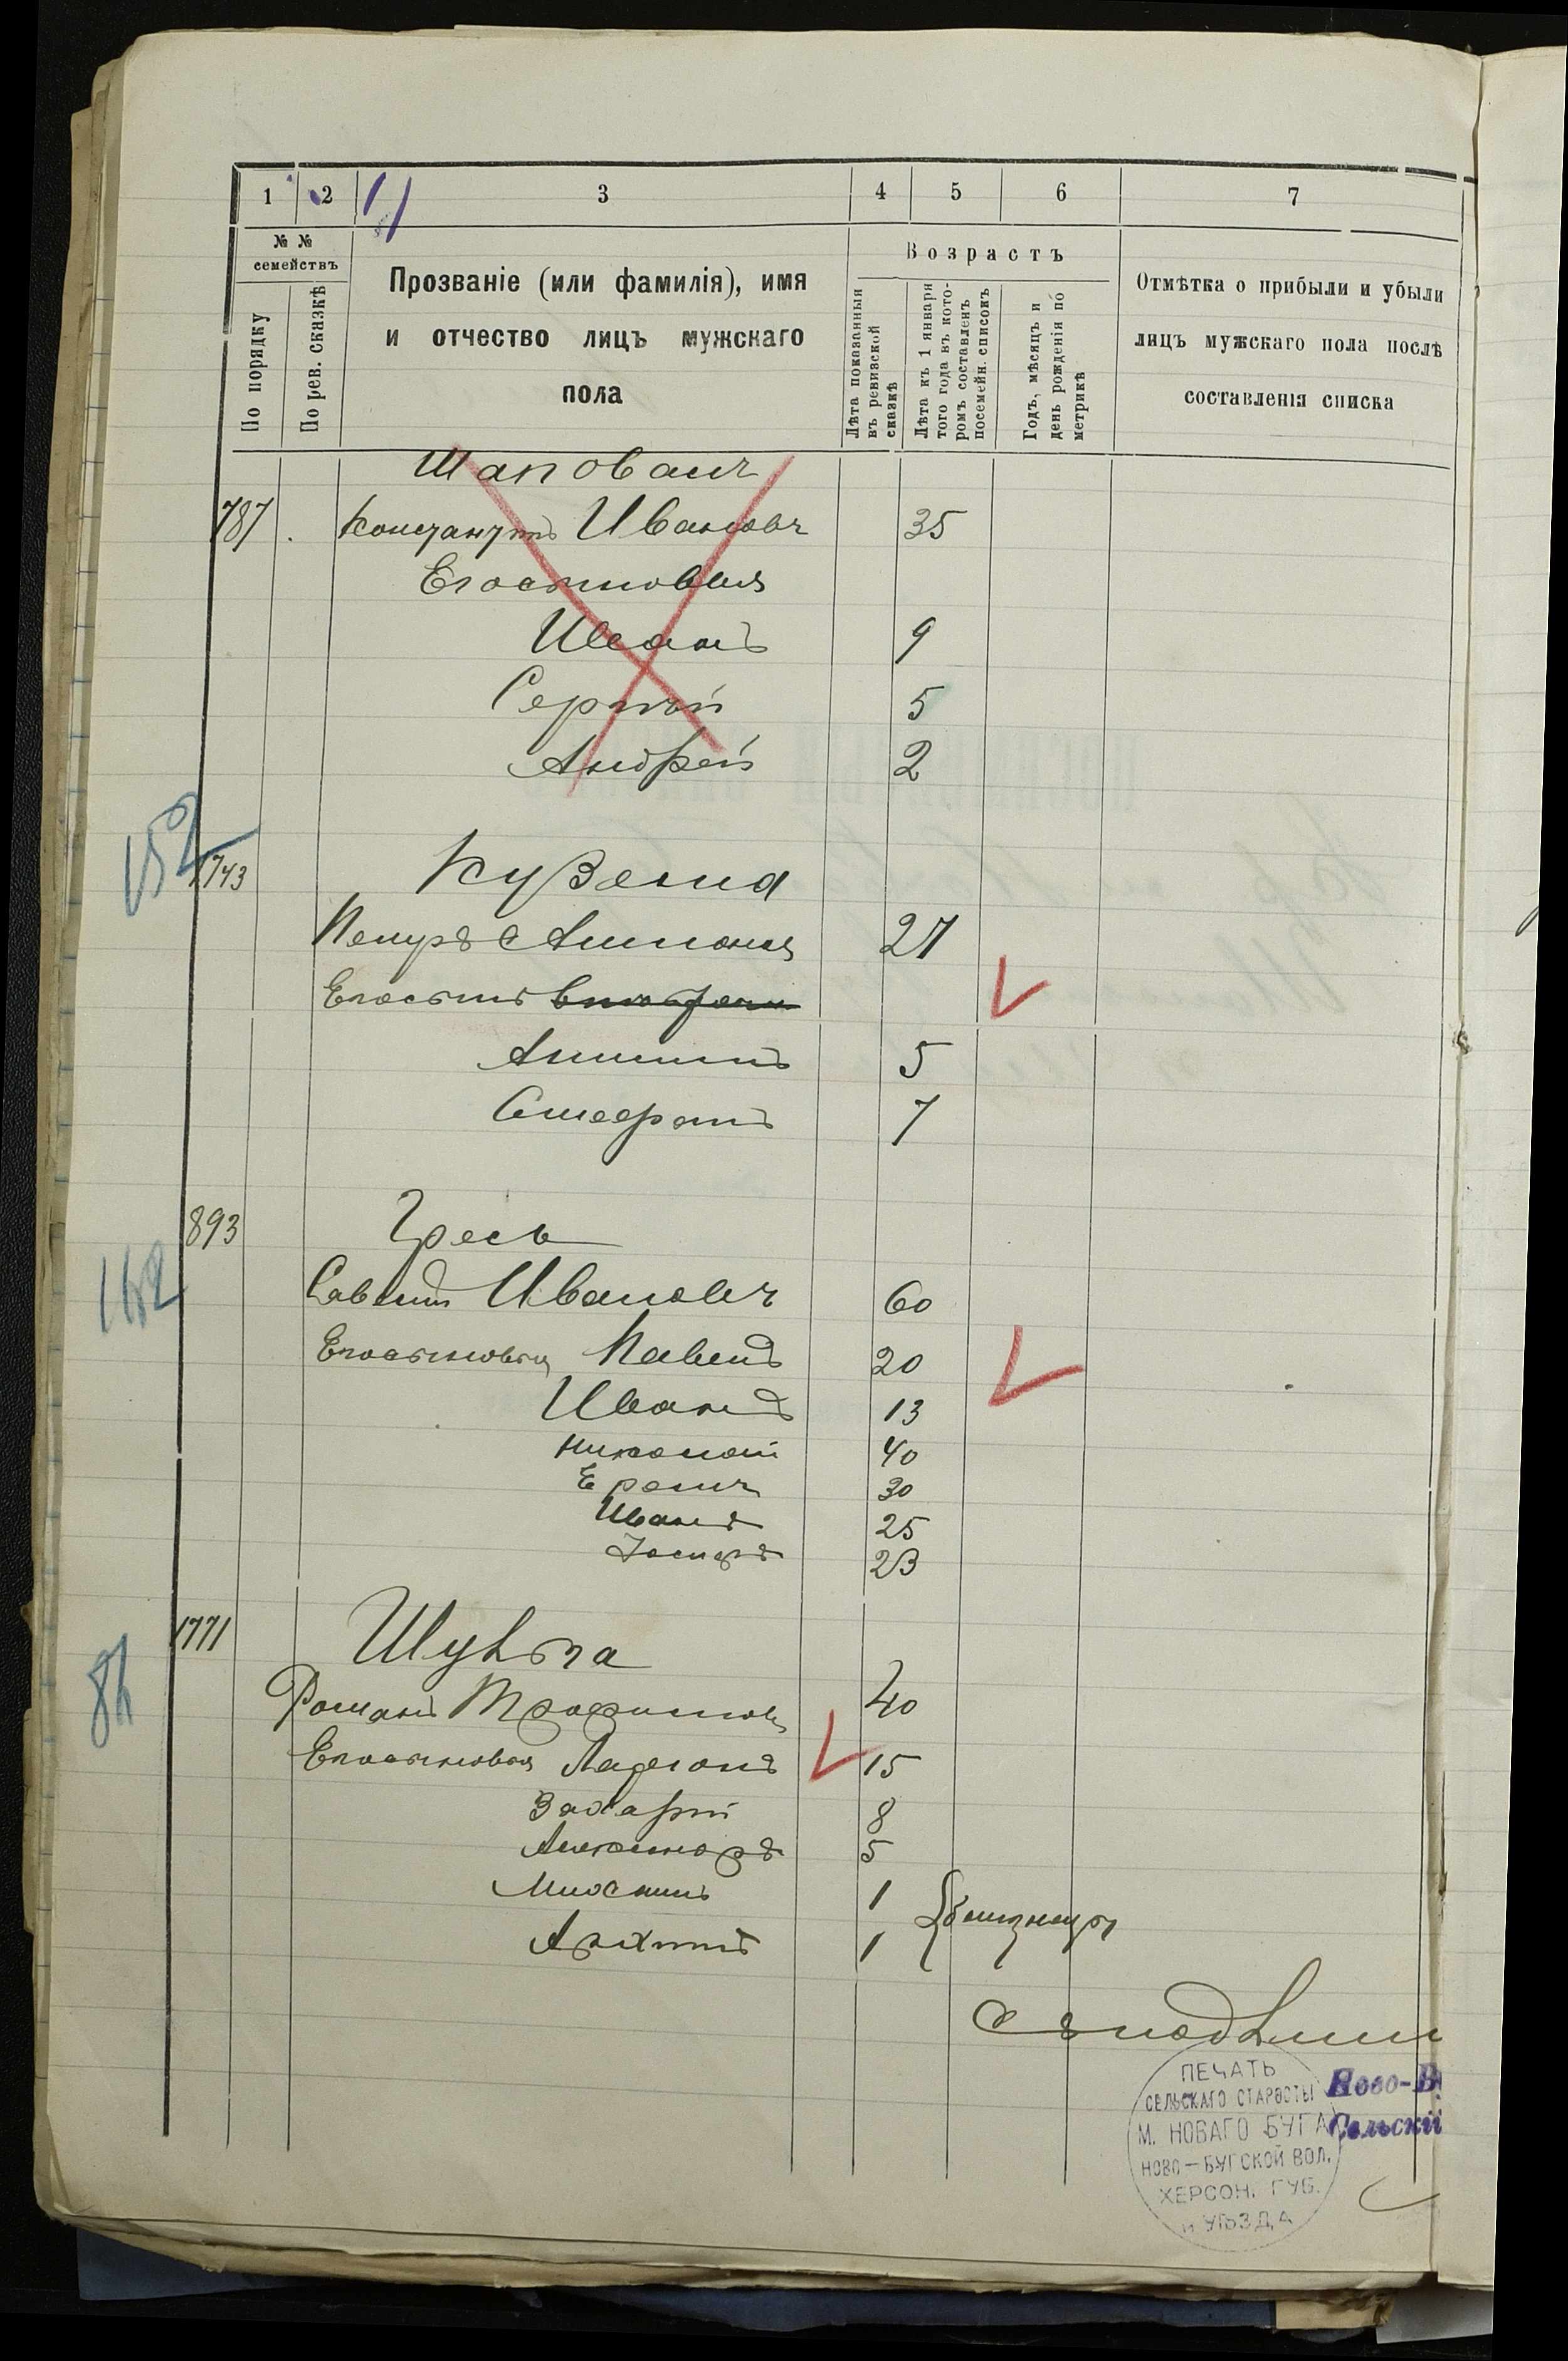 1 2 3 4 5 6 7
№ № семействъ
По порядку
По рев. сказкѣ
Прозваніе (или фамилія), имя
и отчество лицъ мужскаго
пола
Возрастъ
Лѣта показанныя въ ревизской сказкѣ
Лѣта къ 1 января того года въ которомъ составленъ посемейн. списокъ
Годъ, мѣсяцъ и день рожденія по метрикѣ
Отмѣтка о прибыли и убыли
лицъ мужскаго пола послѣ
составленія списка
Шаповалъ
787 Константинъ Ивановъ 35
Его сыновья
Иванъ 9
Сергѣй 5
Андрей 2
152
1743
Петръ 27
Его сынъ
5
Стефанъ 7
893 Гресь
162
Ивановъ 60
Его сыновья Павелъ 20
Иванъ 13
Николай 40
30
Иванъ 25
Іосифъ 23
1771 Шульга
Романъ Трофимовъ 40
Его сыновья 15
Захарій 8
Александръ 5
Михаилъ 1
Архипъ 1
близнецы
ПЕЧАТЬ
СЕЛЬСКАГО СТАРОСТЫ
М. НОВАГО БУГА
НОВО-БУГСКОЙ ВОЛ.
ХЕРСОН. ГУБ.
И УѢЗДА
Ново-Б
Сельскій